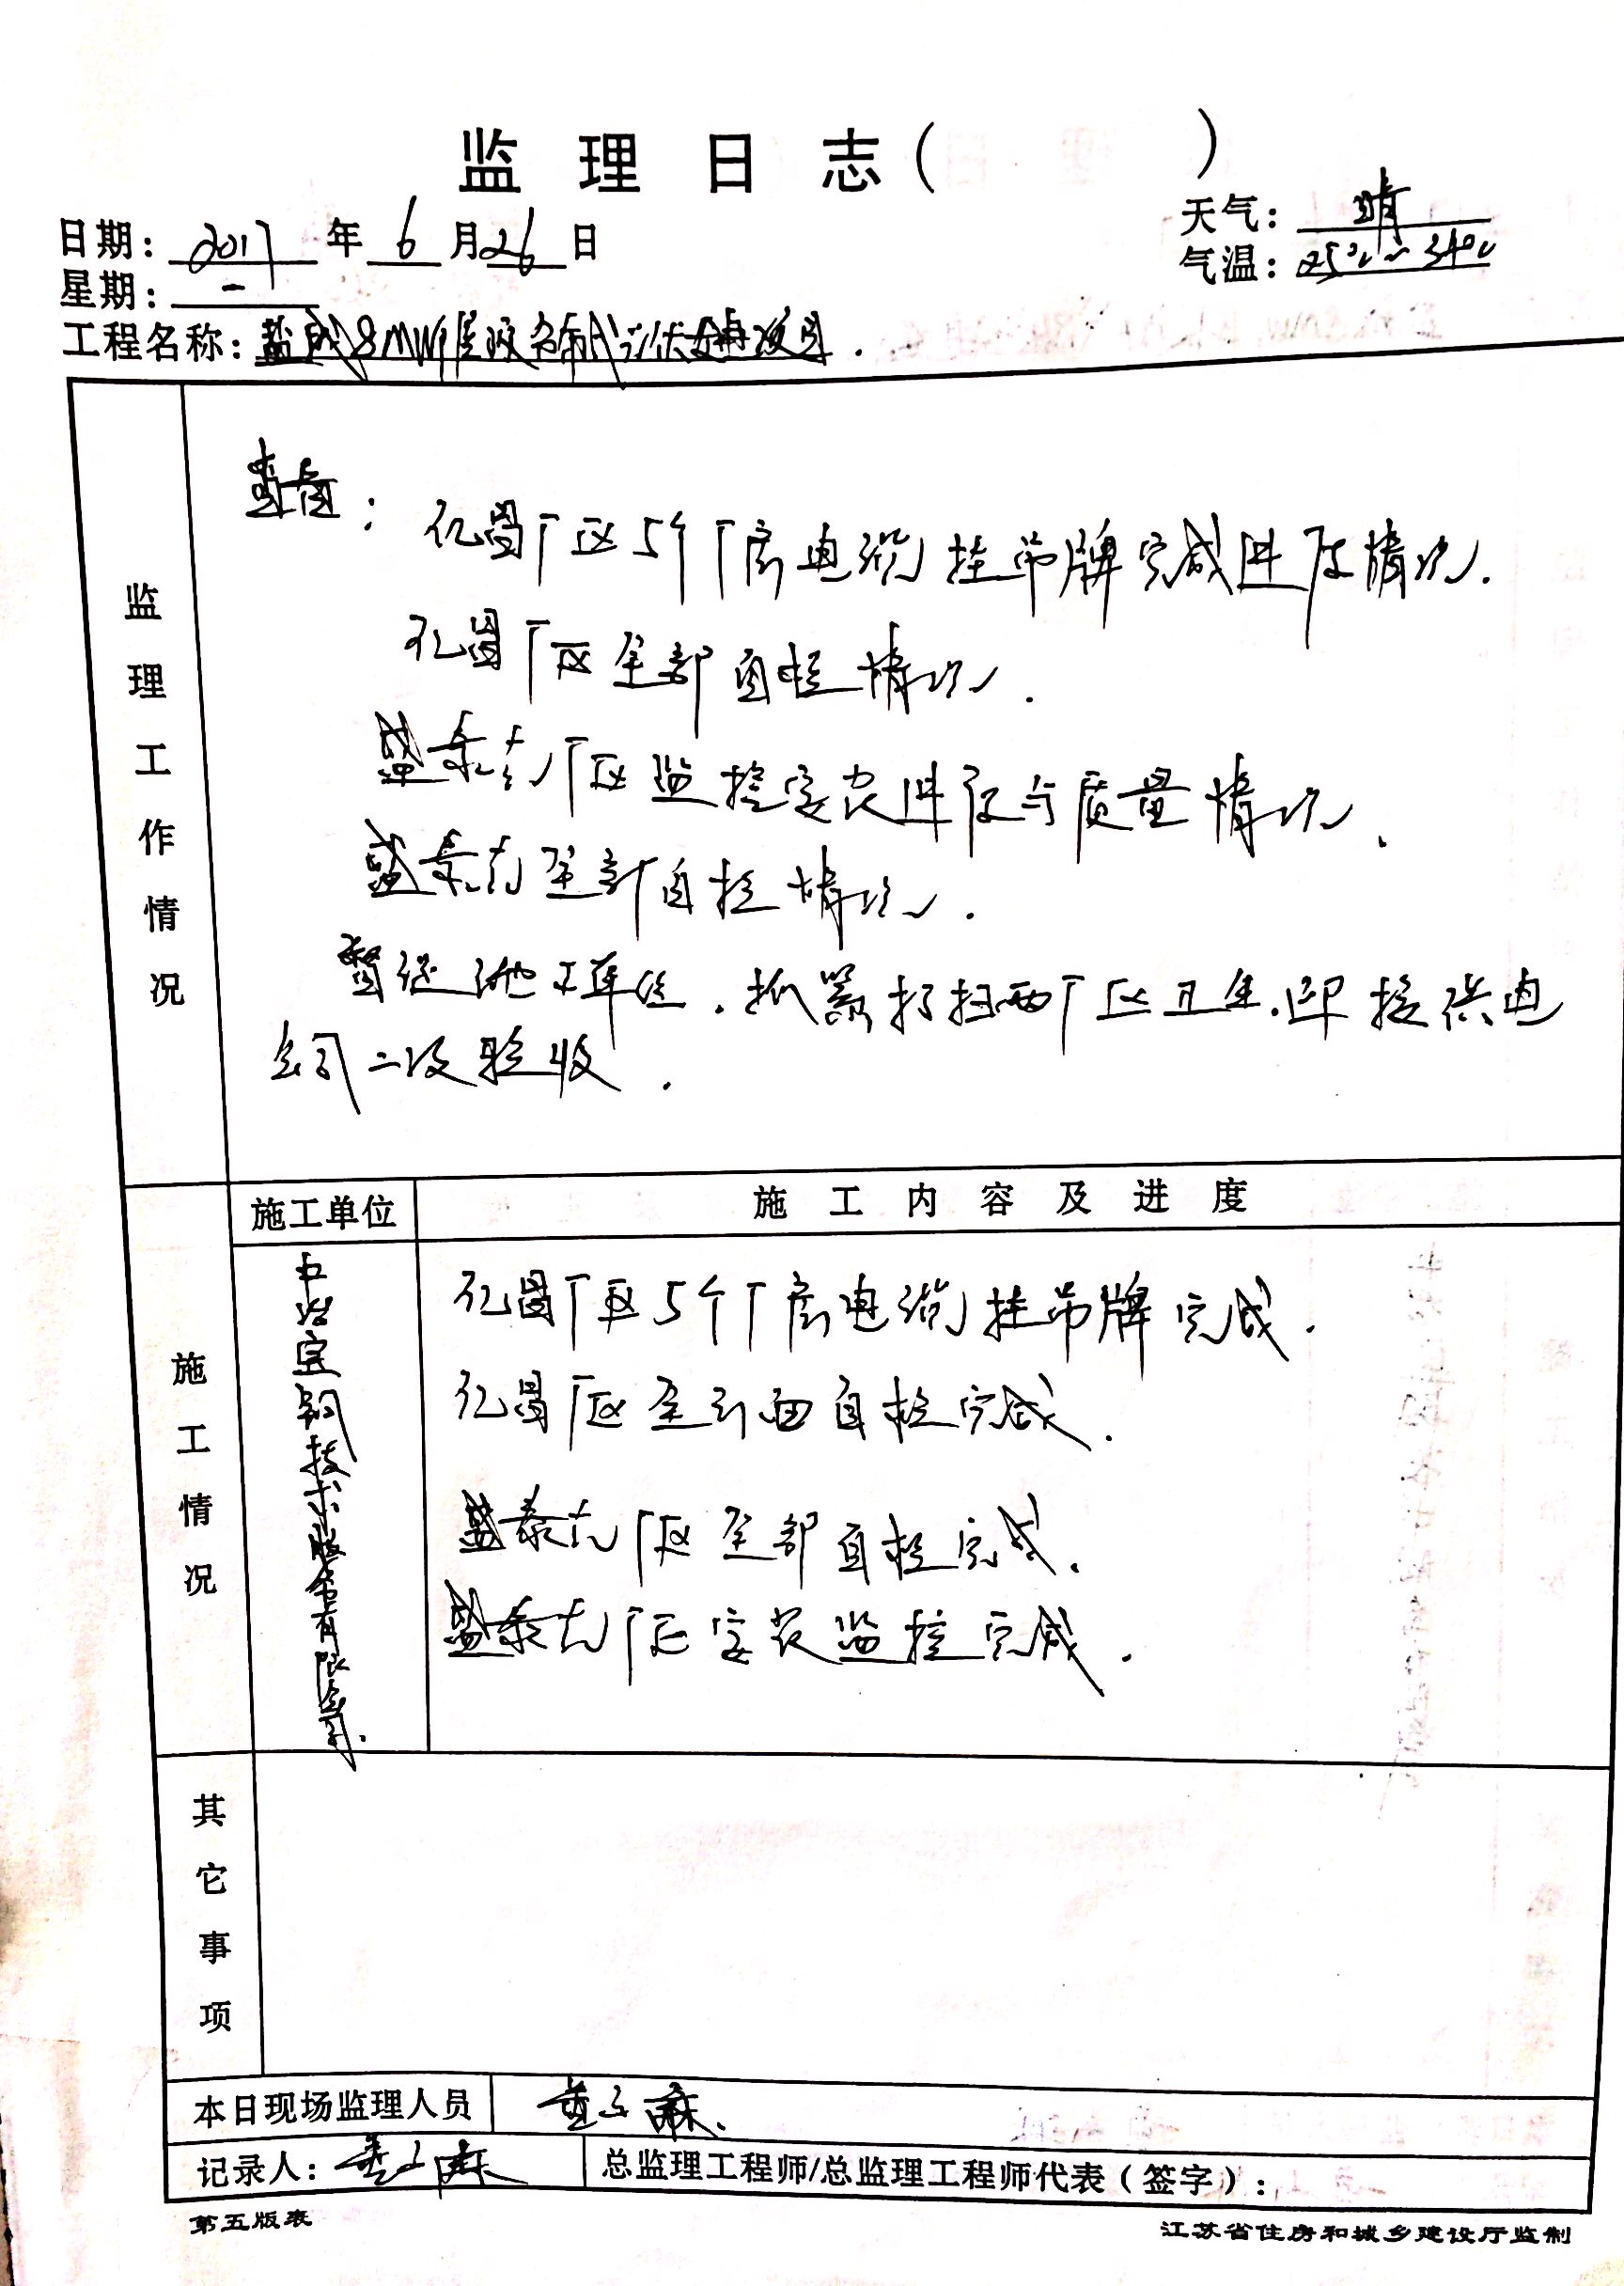 监理日志(          )
日期: 2017 年 6 月 26 日
天气: 晴
星期: 一
气温: 25℃~34℃
工程名称: 盐城8MW屋顶分布式光伏发电项目.
监理工作情况
查看:
亿昌厂区5个厂房电缆挂吊牌完成进度情况.
亿昌厂区全部自检情况.
盛泰克厂区监控安装进度与质量情况.
盛泰克全部自检情况.
督促施工单位.抓紧打扫两厂区卫生.迎接供电
公司二次验收.
施工情况
施工单位
施工内容及进度
中冶宝钢技术服务有限公司.
亿昌厂区5个厂房电缆挂吊牌完成.
亿昌厂区全方面自检完成.
盛泰克厂区全部自检完成.
盛泰克厂区安装监控完成.
其它事项
本日现场监理人员
记录人:
总监理工程师/总监理工程师代表(签字):
第五版表
江苏省住房和城乡建设厅监制